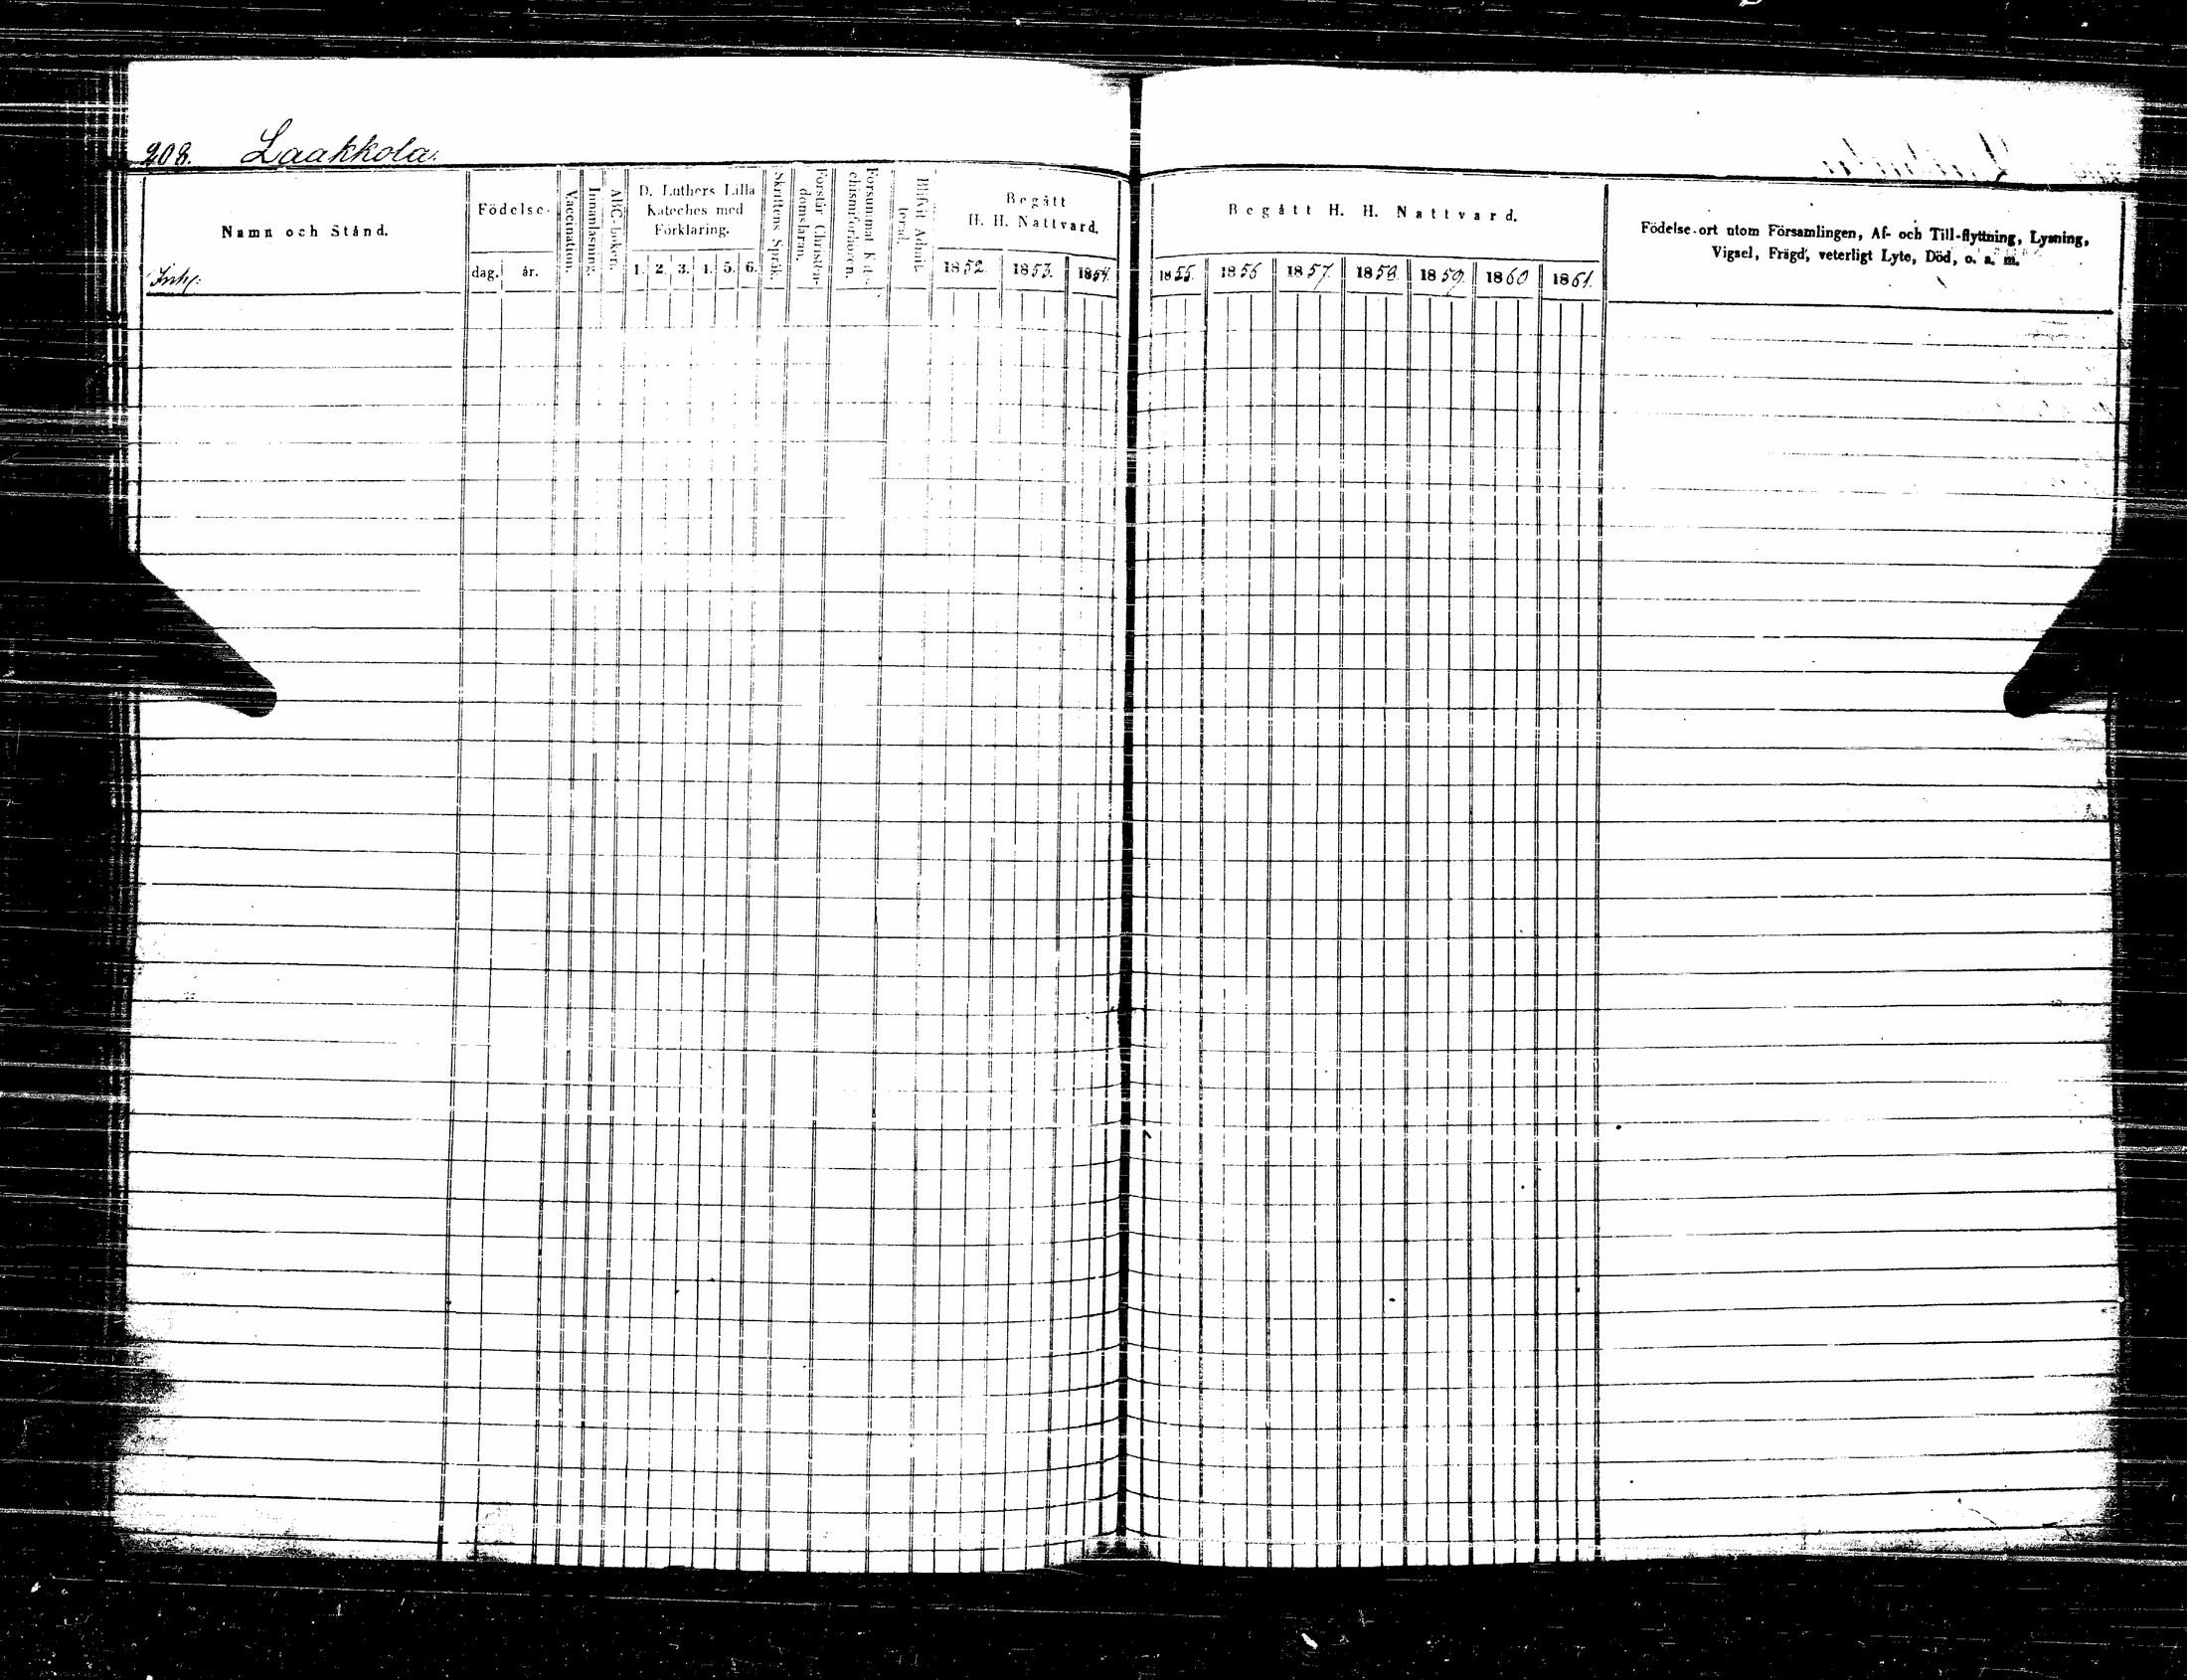 208. Laakkola.
Namn och Stånd.
Inhy:
Födelse-
dag. år.
Vaccination.
Innanläsning.
ABC-boken.
D. Luthers Lilla
Kateches med
Förklaring.
1. 2. 3. 4. 5. 6.
Skriftens Språk.
Förstår Christen-
domsläran.
Försummat Kat-
echismiförhören.
Blifvit Admit-
terad.
Begått
H. H. Nattvard.
1852. 1853. 1854.
Begått H. H. Nattvard.
1855. 1856 1857. 1858. 1859. 1860 1861.
Födelse-ort utom Församlingen, Af- och Till-flyttning, Lysning,
Vigsel, Frägd, veterligt Lyte, Död, o. s. m.